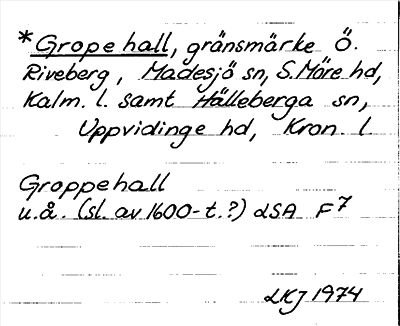 *Gropehall, gränsmärke Ö.
Riveberg, Madesjö sn, S. Möre hd,
Kalm. l. samt Hälleberga sn,
Uppvidinge hd, Kron. l
Groppehall
u.å. (sl. av 1600-t.?) LSA F7
LKJ 1974